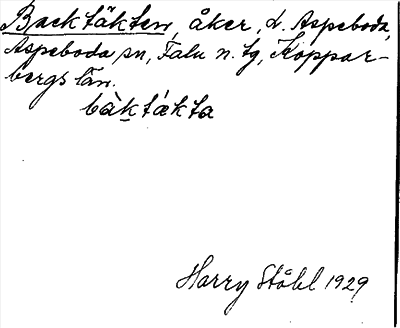 Backtäkten, åker, L. Aspeboda,
Aspeboda sn, Falu n. tg, Koppar-
bergs län.
bàk tǽkta
Harry Ståhl 1929